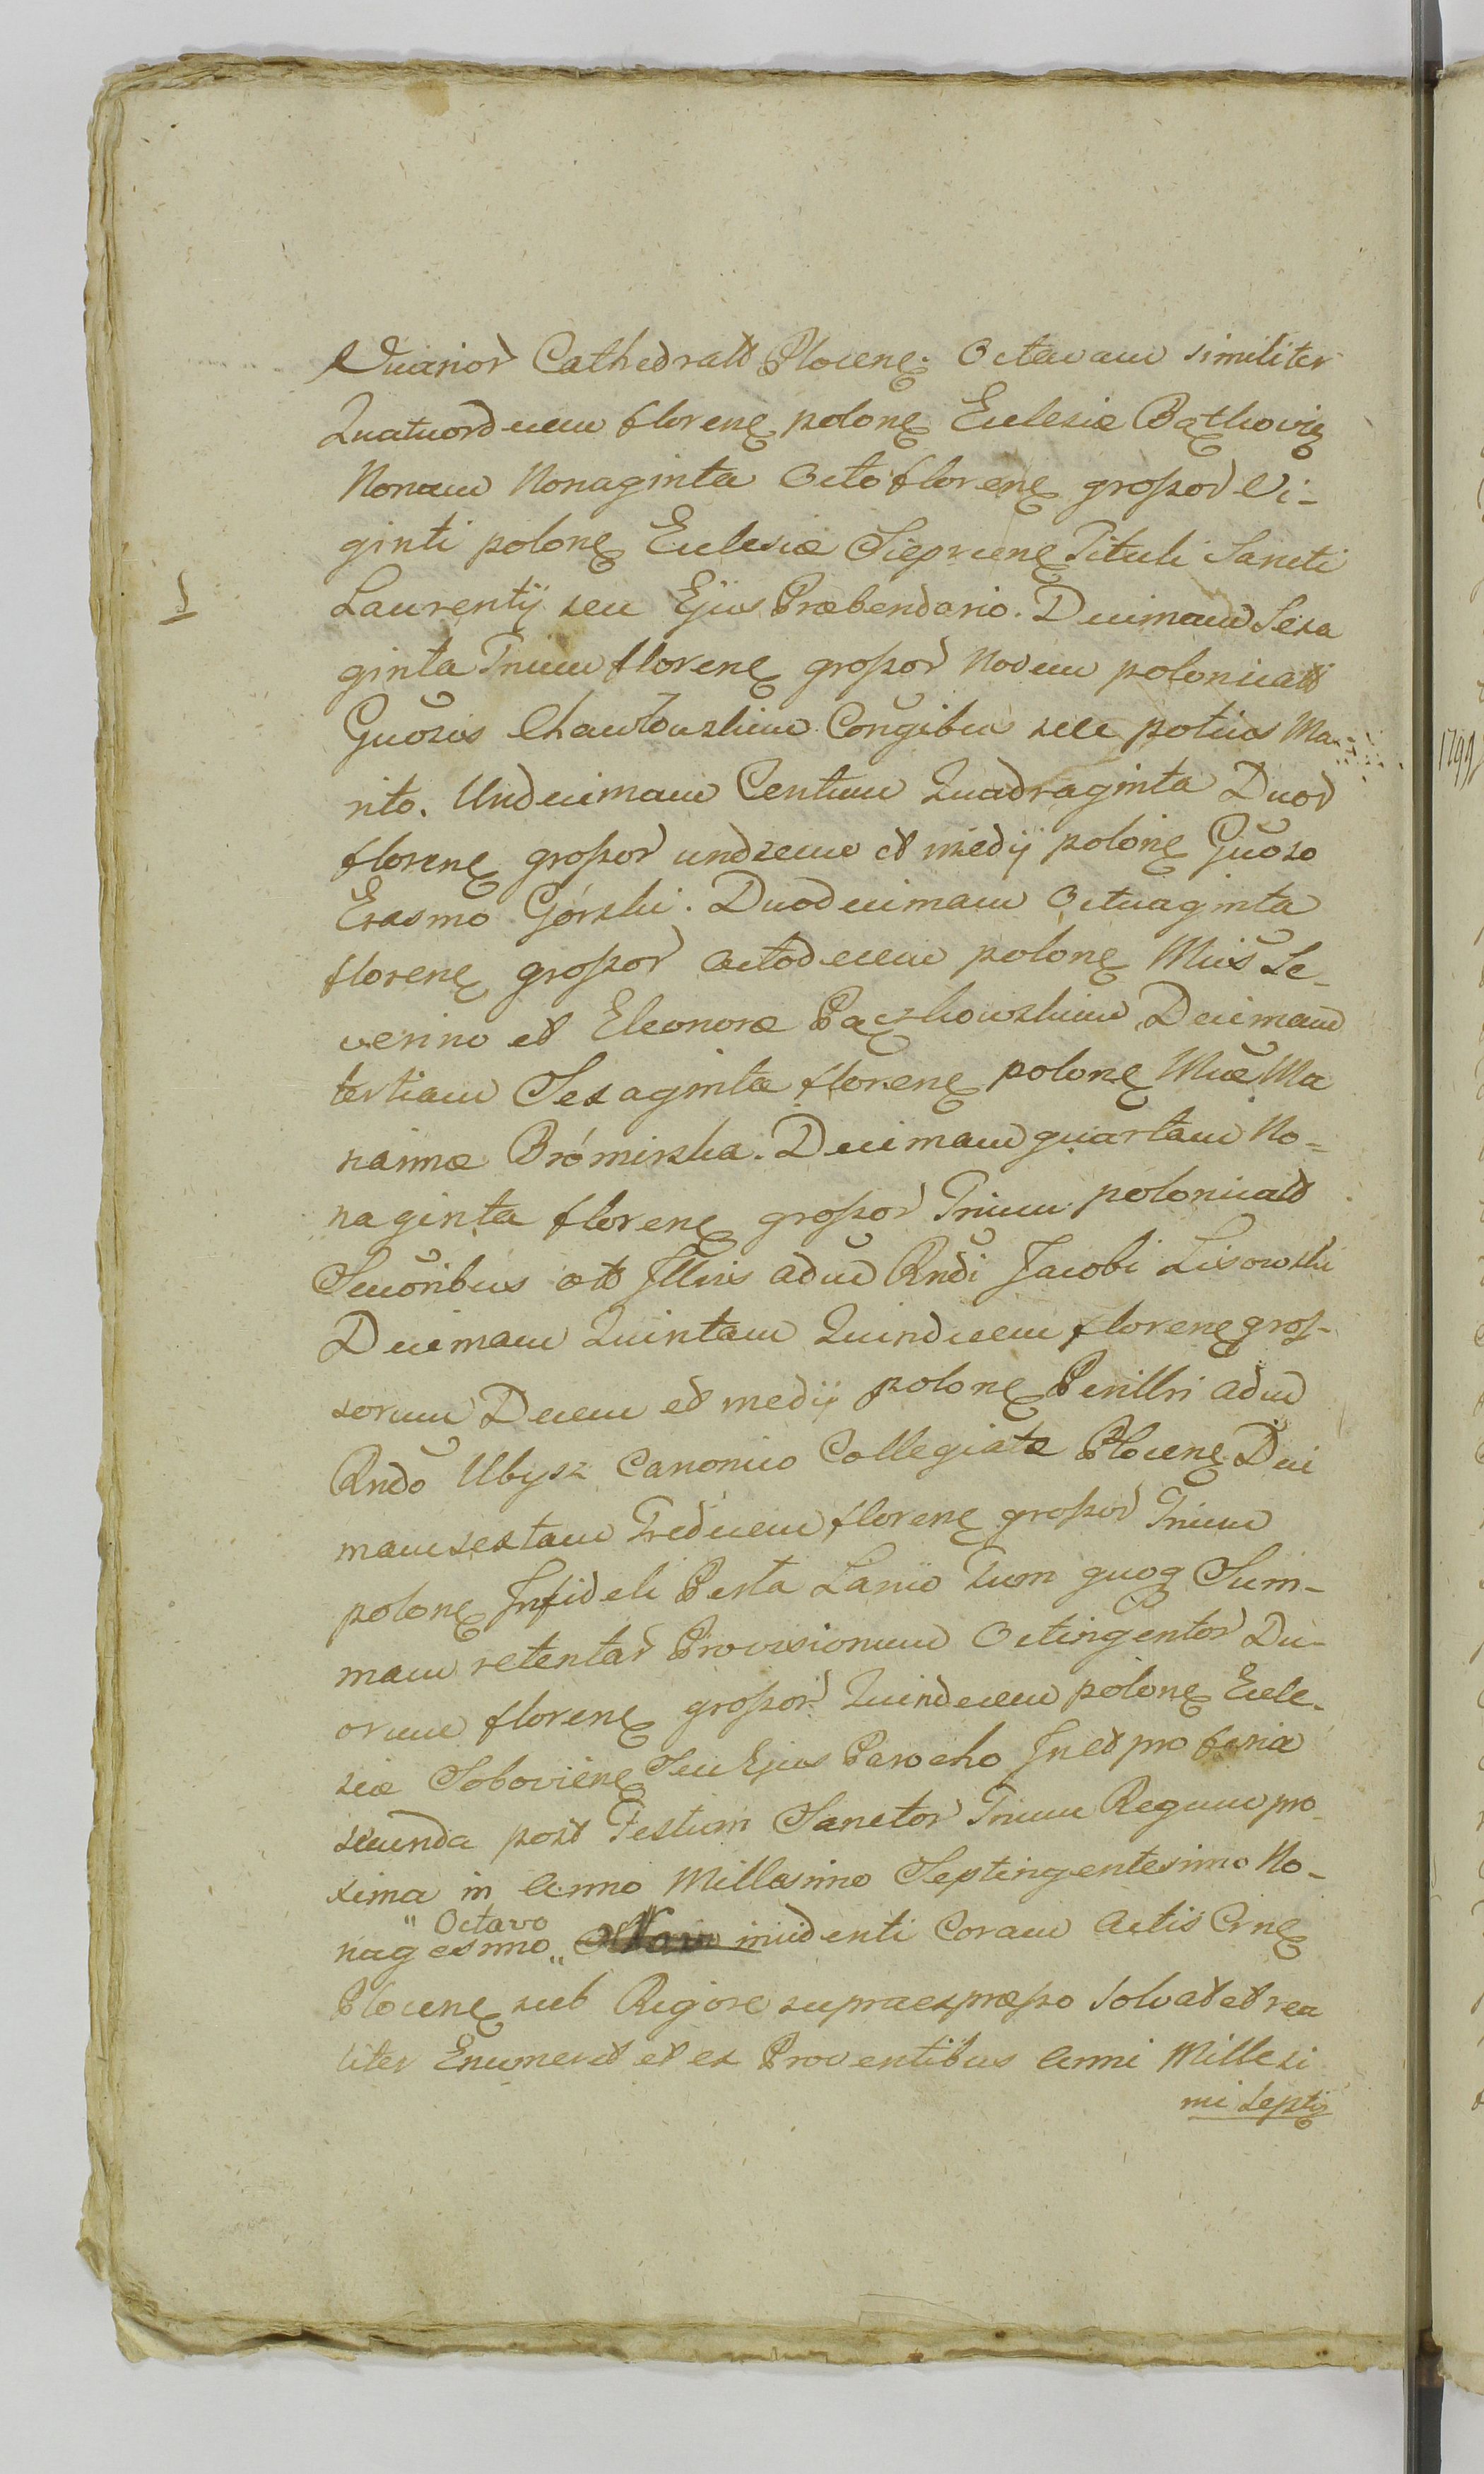 Vicarior Cathedralt Plocenę. Octavam similiter
Quatuordecem florenę polonę Ecclesiæ Bątkovię
Nonam Nonaginta Octo florenę grossor Vi-
ginti polonę Ecclesiæ Sieprcenę Tituli Sancti
Laurentij seu Ejus Præbendario. Decimam Sexa
ginta Trium florenę grossor Novem polonicalt
Gnõsis Chawłowskim Conũgibus seu potius Ma-
rito. Undecimam Centum Quadraginta Duor
florenę grossor undecem et medij polonę Gnõso
Erasmo Górski. Duodecimam Octuaginta
florenę grossor octodecem polonę Mcis Se-
verino et Eleonoræ Pączkowskim Decimam
tertiam Sexaginta florenę polonę Mcæ Ma
riannæ Bromirska. Decimam quartam No-
naginta florenę grossor Trium polonicalt
Sucõribus olt Illris adm Rndi Jacobi Lisowski
Decimam Quintam Quindecem florenę gros-
sorum Decem et medij polonę Perillri adm
Rndo Ubysz Canonico Collegiatæ Plocenę. Deci
mam sextam Tredecem florenę grossor Trium
polonę Infideli Perla Lanio Tum quoq Sum-
mam retentar Provisionum Octingentor Du-
orum florenę grossor Quindecem polonę Eccle-
siæ Sobovienę Seu Ejus Parocho In et pro feria
secunda post Festum Sanctor Trium Regum pro
xima in Anno Millesimo Septingentesimo No-
" Octavo
nagesimo " incidenti Coram Actis Crnę
Plocenę sub Rigore supraexpræsso Solvat et rea
liter Enumeret et ex Proventibus Anni Millesi
mi Septę